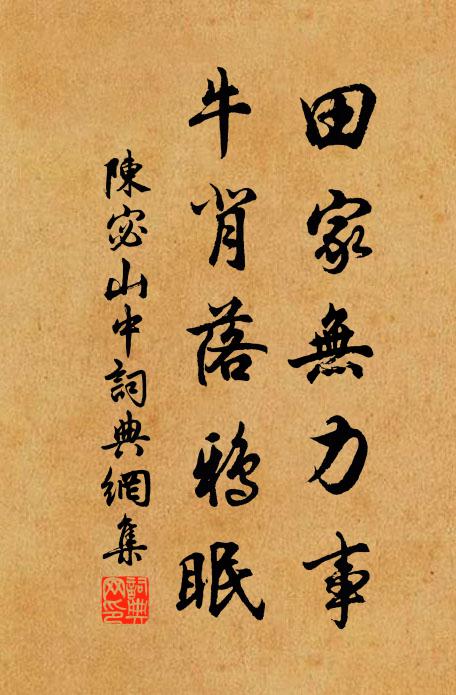 田家無力事
牛背落鴉眠
陳宓山中詞典網集
詞典
网印